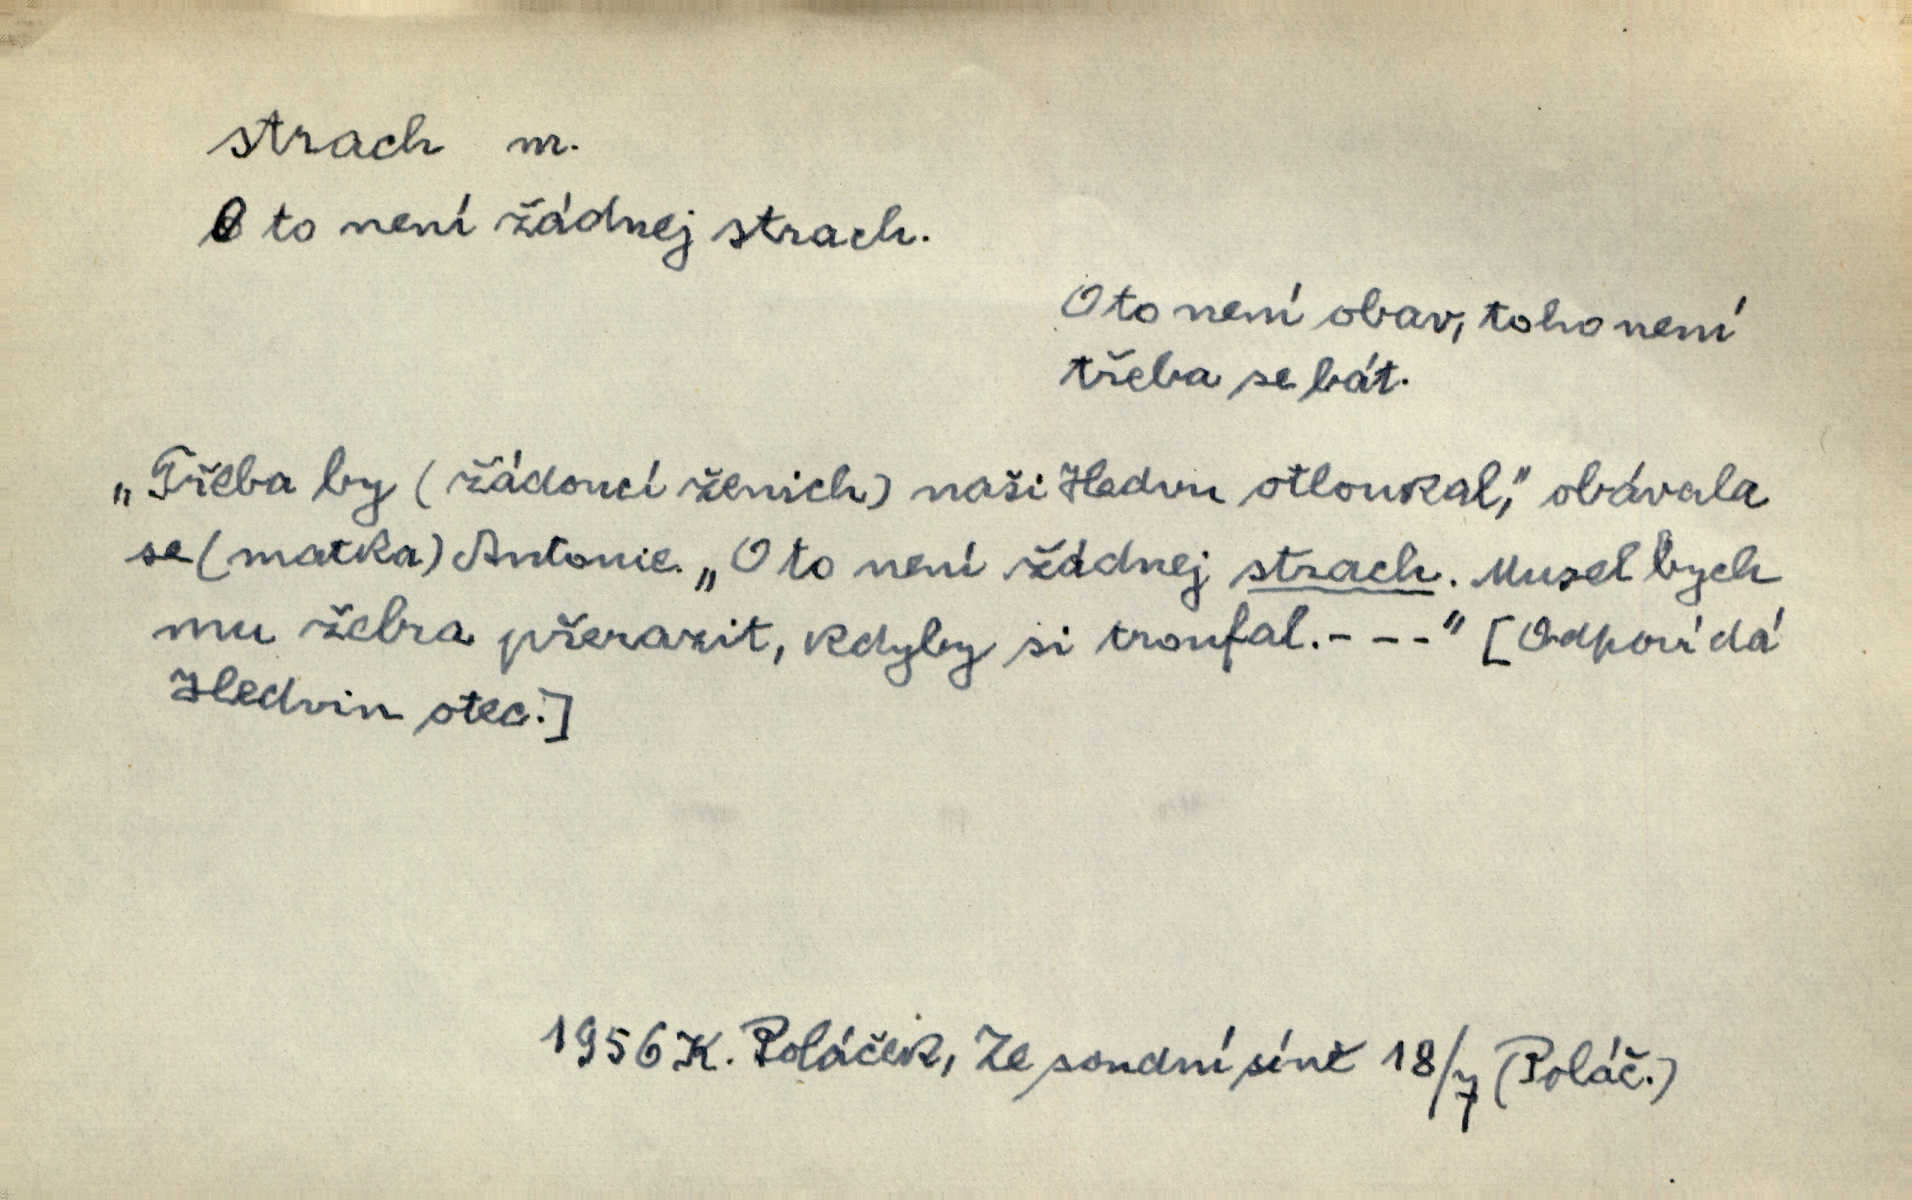 strach m.
O to není žádnej strach.
O to není obav, toho není
třeba se bát.
„Třeba by (žádoucí ženich) naši Hedvu otloukal,“ obávala
se (matka) Antonie. „O to není žádnej strach. Musel bych
mu žebra přerazit, kdyby si troufal. - - -“ [Odpovídá
Hedvin otec.]
1956 K. Poláček, Ze soudní síně 18/7 (Poláč.)